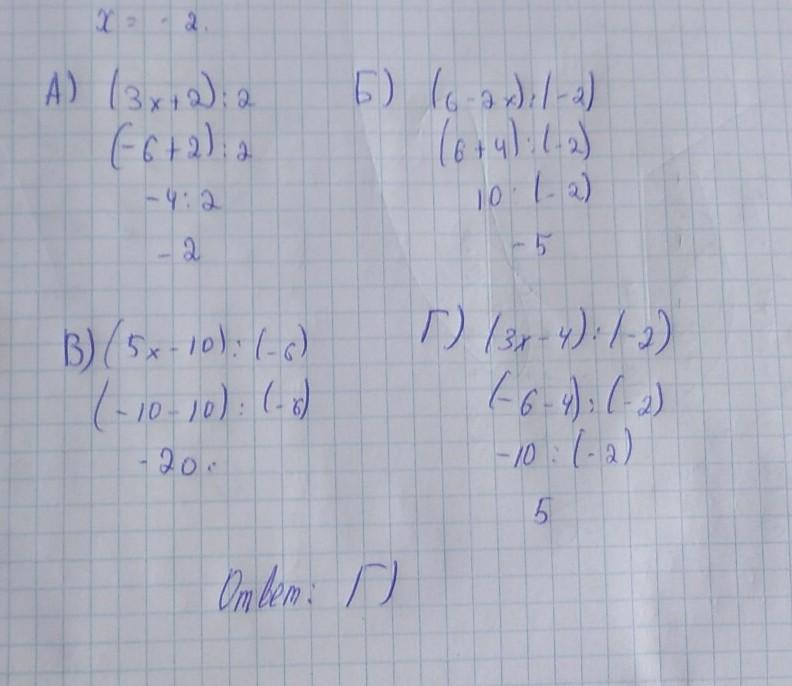 x = - 2.
А) (3x+2):2
(-6+2):2
-4:2
-2
Б) (6-2x):(-2)
(6+4):(-2)
10:(-2)
-5
В) (5x-10):(-6)
(-10-10):(-6)
-20:
Г) (3x-4):(-2)
(-6-4):(-2)
-10:(-2)
5
Ответ: Г)